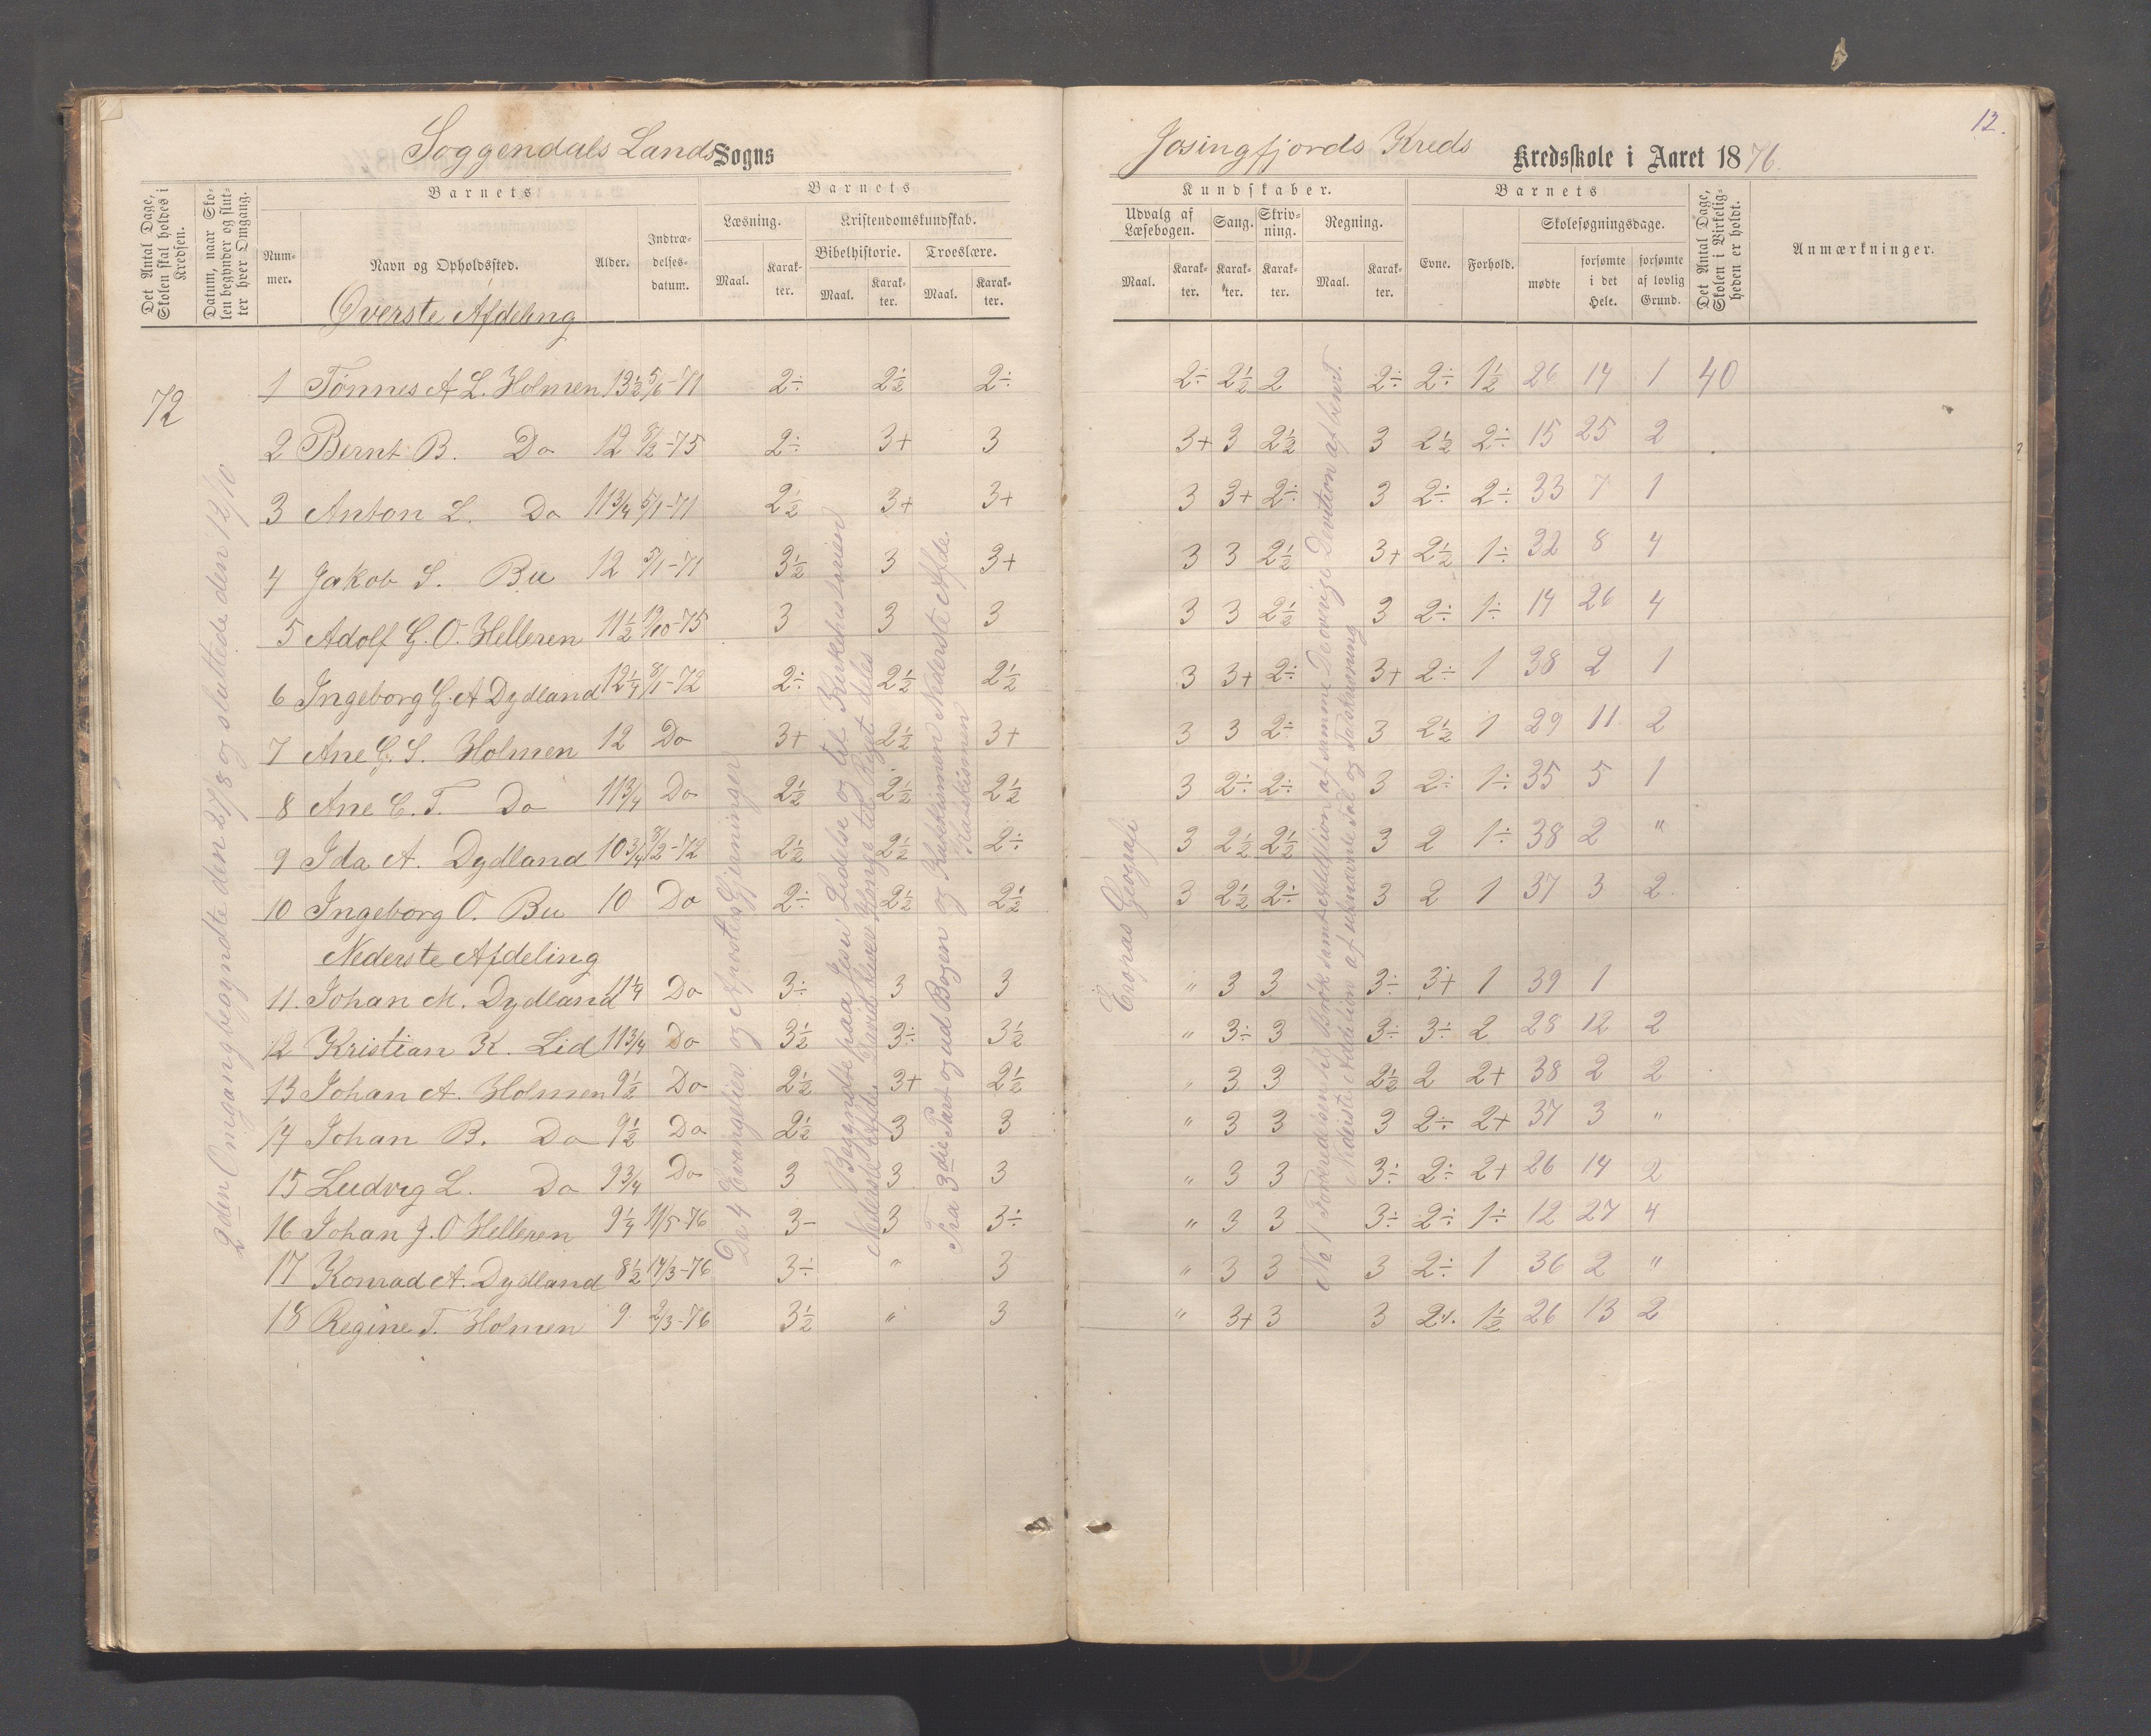 Soggendals Lands Sogns
Jøsingfjords Kreds Kredsskole i Aaret 1876.
12.
Det Antal Dage, Skolen skal holdes i Kredsen.
Datum, naar Skolen begynder og slutter hver Omgang.
Barnets
Nummer.
Navn og Opholdssted.
Alder.
Indtrædelsesdatum.
Barnets
Læsning.
Maal.
Karakter.
Kristendomskundskab.
Bibelhistorie.
Maal.
Karakter.
Troeslære.
Maal.
Karakter.
Kundskaber.
Udvalg af Læsebogen.
Maal.
Karakter.
Sang.
Karakter.
Skrivning.
Karakter.
Regning.
Maal.
Karakter.
Barnets
Evne.
Forhold.
Skolesøgningsdage.
mødte
forsømte i det Hele.
forsømte af lovlig Grund.
Det Antal Dage, Skolen i Virkeligheden er holdt.
Anmærkninger.
Øverste Afdeling
72
2den Omgang begyndte den 27/8 og sluttede den 12/10
1 Tønnes A L. Holmen 13½ 5/6-71 2÷ 2½ 2÷ 2÷ 2½ 2 2÷ 2÷ 1½ 26 14 1 40
2 Bernt B. Do 12 8/2-75 2÷ 3+ 3 3+ 3 2½ 3 2½ 2÷ 15 25 2
3 Anton L. Do 11¾ 5/1-71 2½ 3+ 3+ 3 3+ 2÷ 3 2÷ 2÷ 33 7 1
4 Jakob S. Bu 12 5/1-71 3½ 3 3+ 3 3 2½ 3+ 2½ 1÷ 32 8 4
5 Adolf G. O. Helleren 11½ 12/10-75 3 3 3 3 3 2½ 3 2÷ 1÷ 14 26 4
6 Ingeborg G. A Dydland 12¼ 8/1-72 2÷ 2½ 2½ 3 3+ 2÷ 3+ 2÷ 1 38 2 1
7 Ane G. S. Holmen 12 Do 3+ 2½ 3+ 3 3 2÷ 3 2½ 1 29 11 2
8 Ane C. T. Do 11¾ Do 2½ 2½ 2½ 3 2÷ 2÷ 3 2÷ 1÷ 35 5 1
9 Ida A. Dydland 10¾ 8/2-72 2½ 2½ 2÷ 3 2½ 2½ 3 2 1÷ 38 2 "
10 Ingeborg O. Bu 10 Do 2÷ 2½ 2½ 3 2½ 2÷ 3 2 1 37 3 2
Nederste Afdeling
11. Johan M. Dydland 11¼ Do 3÷ 3 3 " 3 3 3÷ 3+ 1 39 1
12 Kristian K. Lid 11¾ Do 3½ 3÷ 3½ " 3÷ 3 3÷ 3÷ 2 28 12 2
13 Johan A. Holmen 9½ Do 2½ 3+ 2½ " 3 3 2½ 2 2+ 38 2 2
14 Johan B. Do 9½ Do 2½ 3 3 " 3 3 3 2÷ 2+ 37 3 "
15 Ludvig L. Do 9¾ Do 3 3 3 " 3 3 3÷ 2÷ 2+ 26 14 2
16 Johan J. O Helleren 9¼ 11/5-76 3- 3 3÷ " 3 3 3÷ 2÷ 1÷ 12 27 4
17 Konrad A. Dydland 8½ 14/3-76 3÷ " 3 " 3 3 3 2÷ 1 36 2 "
18 Regine T. Holmen 9 2/3-76 3½ " 3 " 3+ 3 3 2÷ 1½ 26 13 2
De 4 Evangelier og Apostles Gjerninger
Begyndte paa Jesu Lidelse og til Kirkehistorien
Nederste Afde. David bliver Konge til Riget deles
Fra 3die Part og ud Bogen og Katekismen Nederste Afde.
Katekismen
Evropas Geografi
No 1 Forkredsen til Brøk samt Addition af samme De øvrige Devition af benvt.
Nederste Addition af ubenævnte Tal og Talskrivning